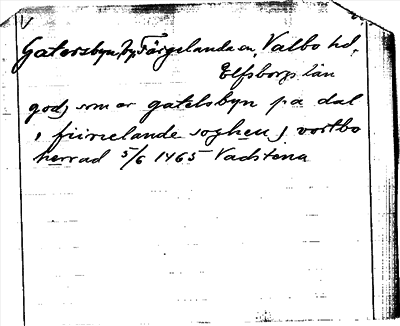 Gatersbyn, by, Färgelanda sn, Valbo hd,
Elfsborgs län
gods som er gatelsbyn pa dal
i fiirielande soghen j vortbo
herrad 5/6 1465 Vadstena